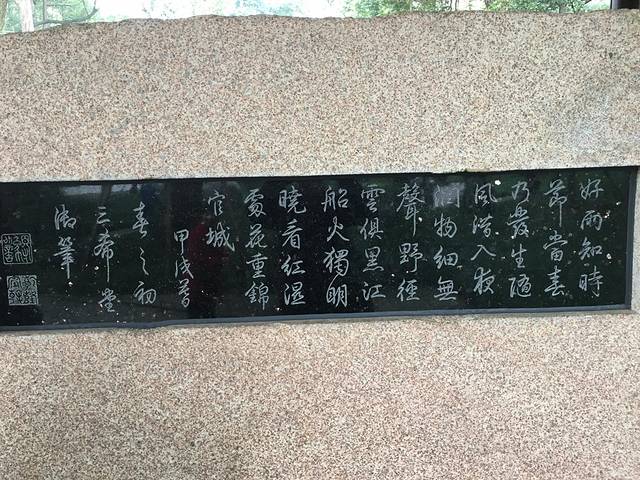 好雨知時
節當春
乃發生隨
風潜入夜
潤物細無
聲野徑
雲俱黑江
船火獨明
曉看紅濕
處花重錦
官城
甲戌暮
春之初
三希堂
御筆